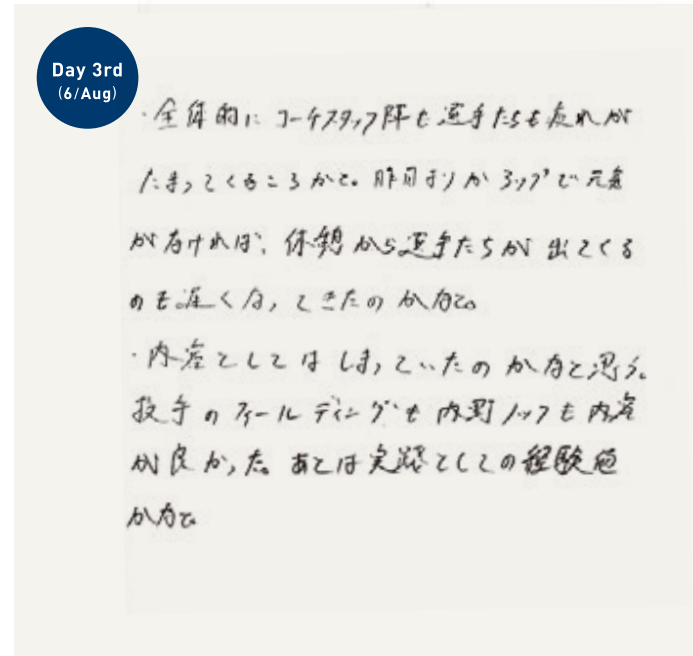 Day 3rd
(6/Aug)
・全体的にコーチスタッフ陣も選手たちも疲れが
たまってくるころかと。昨日よりカラ ップで元気
がなければ、休憩から選手たちが出てくる
のも遅くなってきたのかなと。
・内容としてはしまっていたのかなと思う。
投手のフィールディングも内野ノックも内容
が良かった。あとは実践としての経験値
かなと